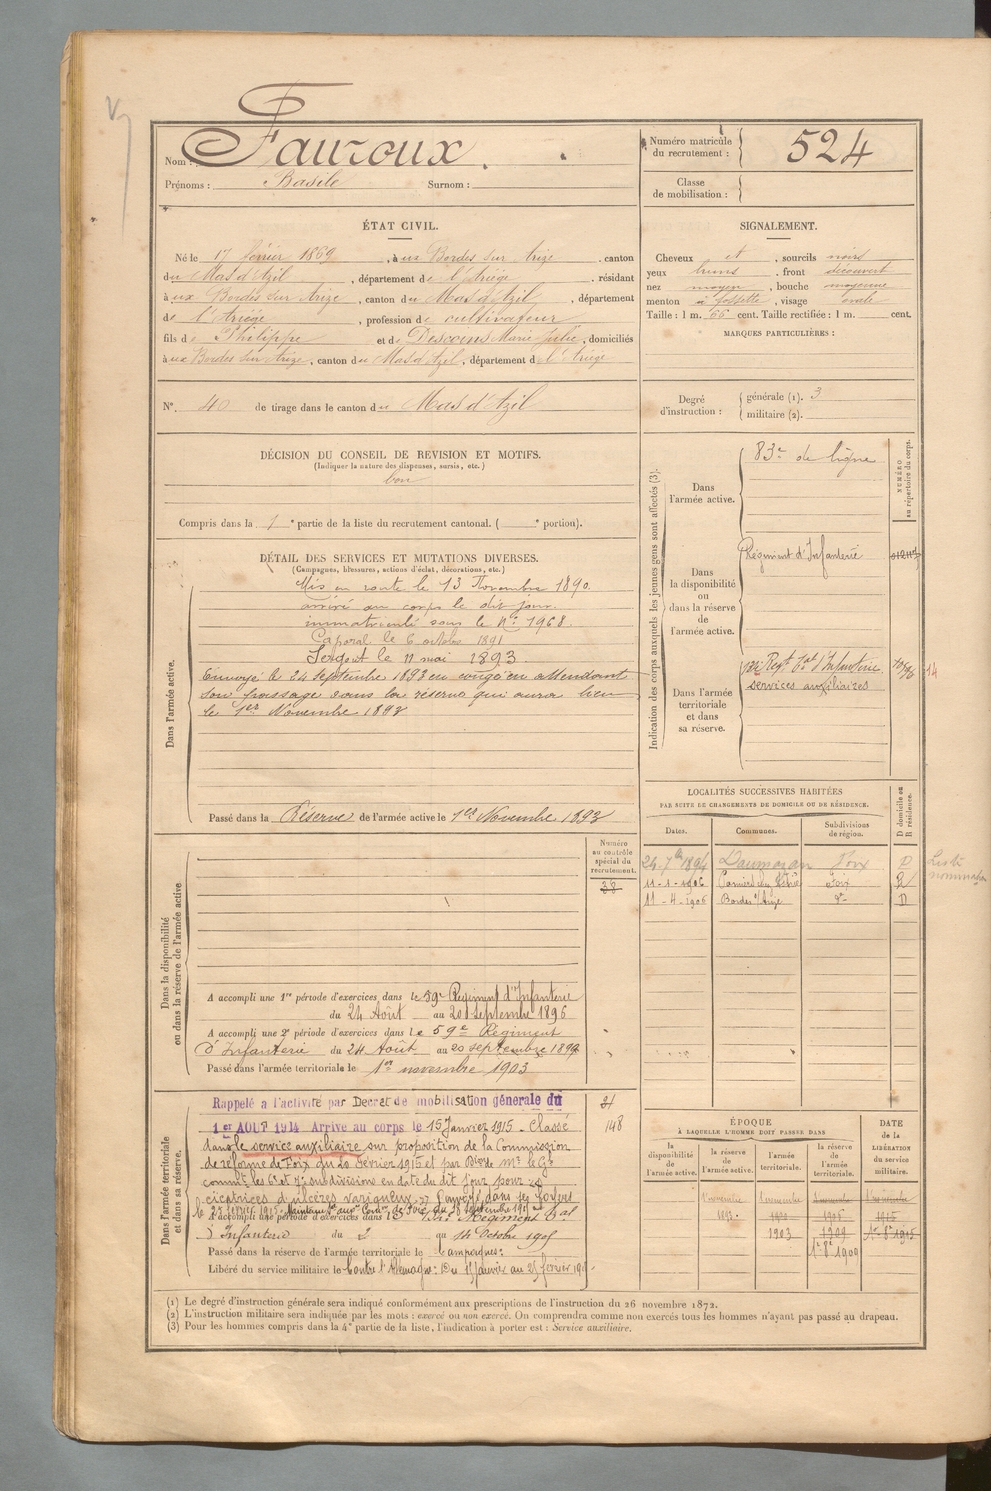 Nom : Fauroux.
Prénoms : Basile Surnom :
Numéro matricule du recrutement : 524
Classe de mobilisation :
ÉTAT CIVIL.
Né le 17 février 1869, à ux Bordes sur Arize, canton
du Mas d'Azil, département de l'Ariège, résidant
à ux Bordes sur Arize, canton du Mas d'Azil, département
de l'Ariège, profession de cultivateur
fils de Philippe et de Descoins Marie Julie, domiciliés
à ux Bordes sur Arize, canton du Mas d'Azil, département d l'Ariège
SIGNALEMENT.
Cheveux et, sourcils noirs
yeux bruns, front découvert
nez moyen, bouche moyenne
menton à fossette, visage ovale
Taille : 1 m. 66 cent. Taille rectifiée : 1 m. cent.
MARQUES PARTICULIÈRES :
N°. 40 de tirage dans le canton du Mas d'Azil
Degré d'instruction : générale (1). 3
militaire (2).
DÉCISION DU CONSEIL DE REVISION ET MOTIFS.
(Indiquer la nature des dispenses, sursis, etc.)
bon
Compris dans la 1e partie de la liste du recrutement cantonal. ( e portion).
DÉTAIL DES SERVICES ET MUTATIONS DIVERSES.
(Campagnes, blessures, actions d'éclat, décorations, etc.)
Dans l'armée active.
Mis en route le 13 Novembre 1890.
arrivé au corps le dit jour.
immatriculé sous le N° 1968.
Caporal le 6 octobre 1891
Sergent le 11 mai 1893.
Envoyé le 24 Septembre 1893 en congé en attendant
son passage dans la réserve qui aura lieu
le 1er Novembre 1893
Passé dans la Réserve de l'armée active le 1er Novembre 1893
Indication des corps auxquels les jeunes gens sont affectés (3).
NUMÉRO au répertoire du corps.
Dans l'armée active.
83e de ligne
Dans la disponibilité ou dans la réserve de l'armée active.
Régiment d'Infanterie
Dans l'armée territoriale et dans sa réserve.
Regt Tal d'Infanterie
services auxiliaires
14
LOCALITÉS SUCCESSIVES HABITÉES
PAR SUITE DE CHANGEMENTS DE DOMICILE OU DE RÉSIDENCE.
D domicile ou R résidence.
Dates. Communes. Subdivisions de région.
24-7bre 1894 Daumazan Foix D Liste
11-1-1906 Foix R
11-4-1906 Bordes s/Arize do D
Dans la disponibilité ou dans la réserve de l'armée active
Numéro au contrôle spécial du recrutement.
38
A accompli une 1re période d'exercices dans le 59e Régiment d'Infanterie
du 24 Août au 20 Septembre 1896
A accompli une 2e période d'exercices dans le 59e Régiment
d'Infanterie du 24 Août au 20 septembre 1899
Passé dans l'armée territoriale le 1er novembre 1903
Dans l'armée territoriale et dans sa réserve.
Rappelé à l'activité par Decret de mobilisation génerale du
1er AOUT 1914 Arrive au corps le 15 Janvier 1915 - Classé
dans le service auxiliaire sur proposition de la Commission
de réforme de Foix du 20 février 1915 et par
subdivisions en date du dit jour pour
cicatrices d'ulcères variqueux. Renvoyé dans ses foyers
le 25 février 1915.
A accompli une période d'exercices dans le Régiment Tal
d'Infanterie du 2 au 14 Octobre 1905
Passé dans la réserve de l'armée territoriale le Campagnes :
Libéré du service militaire le Contre l'Allemagne : Du 15 janvier au 25 février 1915.
148
ÉPOQUE
À LAQUELLE L'HOMME DOIT PASSER DANS
la disponibilité de l'armée active. la réserve de l'armée active. l'armée territoriale. la réserve de l'armée territoriale.
DATE de la LIBÉRATION du service militaire.
1903 1909
1er 8bre 1909
(1) Le degré d'instruction générale sera indiqué conformément aux prescriptions de l'instruction du 26 novembre 1872.
(2) L'instruction militaire sera indiquée par les mots : exercé ou non exercé. On comprendra comme non exercés tous les hommes n'ayant pas passé au drapeau.
(3) Pour les hommes compris dans la 4e partie de la liste, l'indication à porter est : Service auxiliaire.